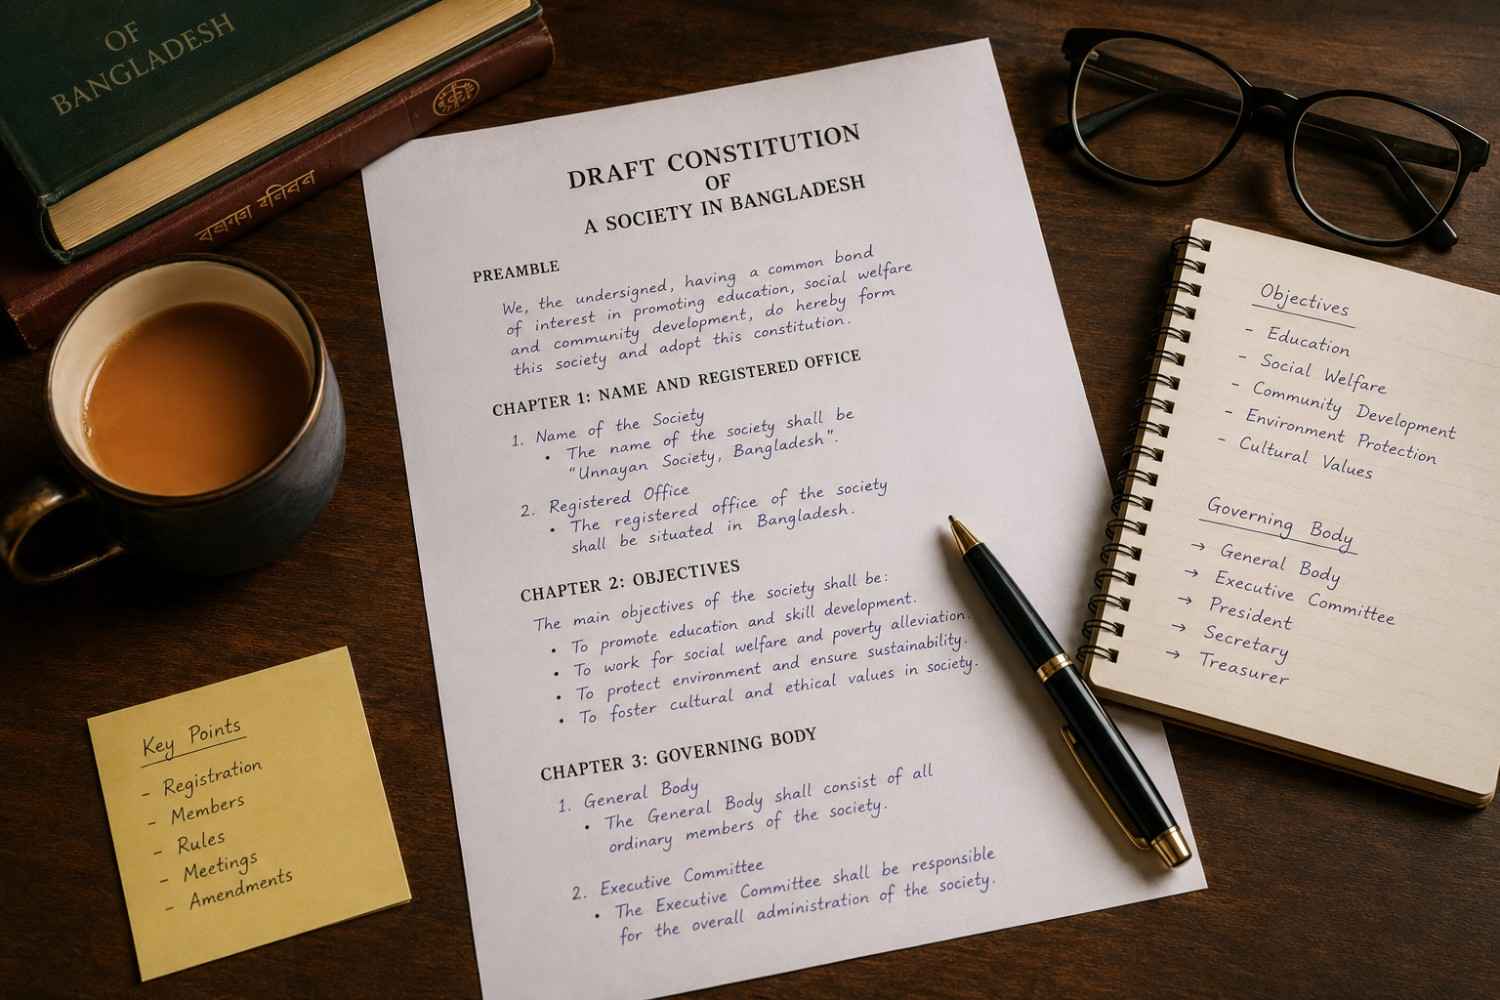 OF
BANGLADESH
DRAFT CONSTITUTION
OF
A SOCIETY IN BANGLADESH
PREAMBLE
We, the undersigned, having a common bond
of interest in promoting education, social welfare
and community development, do hereby form
this society and adopt this constitution.
CHAPTER 1: NAME AND REGISTERED OFFICE
1. Name of the Society
• The name of the society shall be
"Unnayan Society, Bangladesh".
2. Registered Office
• The registered office of the society
shall be situated in Bangladesh.
CHAPTER 2: OBJECTIVES
The main objectives of the society shall be:
• To promote education and skill development.
• To work for social welfare and poverty alleviation.
• To protect environment and ensure sustainability.
• To foster cultural and ethical values in society.
CHAPTER 3: GOVERNING BODY
1. General Body
• The General Body shall consist of all
ordinary members of the society.
2. Executive Committee
• The Executive Committee shall be responsible
for the overall administration of the society.
Objectives
- Education
- Social Welfare
- Community Development
- Environment Protection
- Cultural Values
Governing Body
→ General Body
→ Executive Committee
→ President
→ Secretary
→ Treasurer
Key Points
- Registration
- Members
- Rules
- Meetings
- Amendments